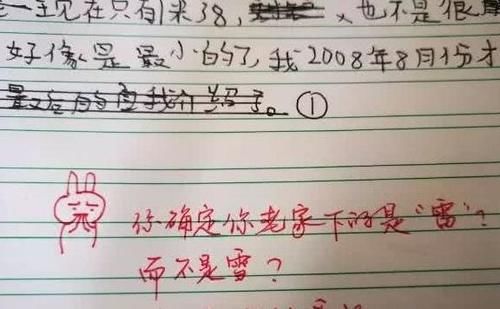 现在只有1米38，也不是很
好像是最小的了，我2008年8月份才
最后有自我介绍了。①
你确定你老家下的是“雷”？
而不是雪？